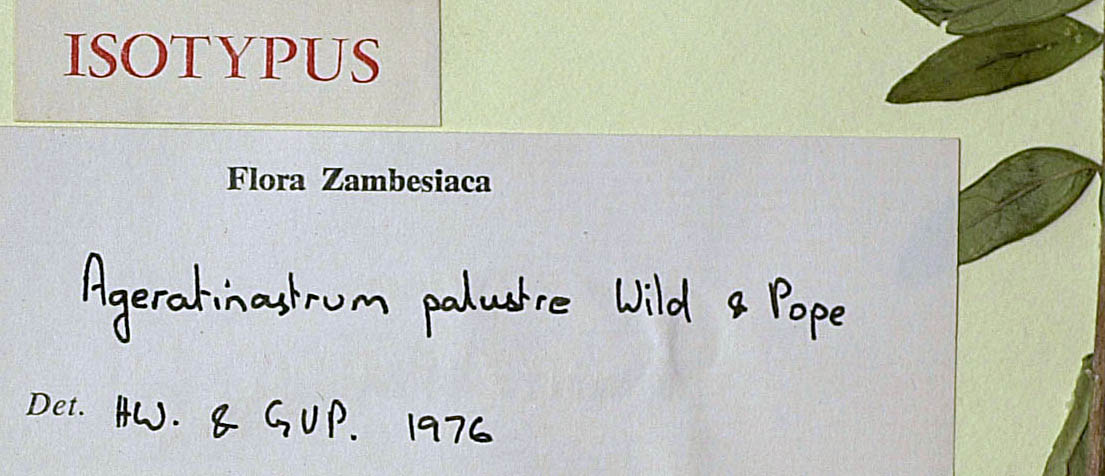 ISOTYPUS
Flora Zambesiaca
Ageratinastrum palustre Wild & Pope
Det. HW. & GVP. 1976